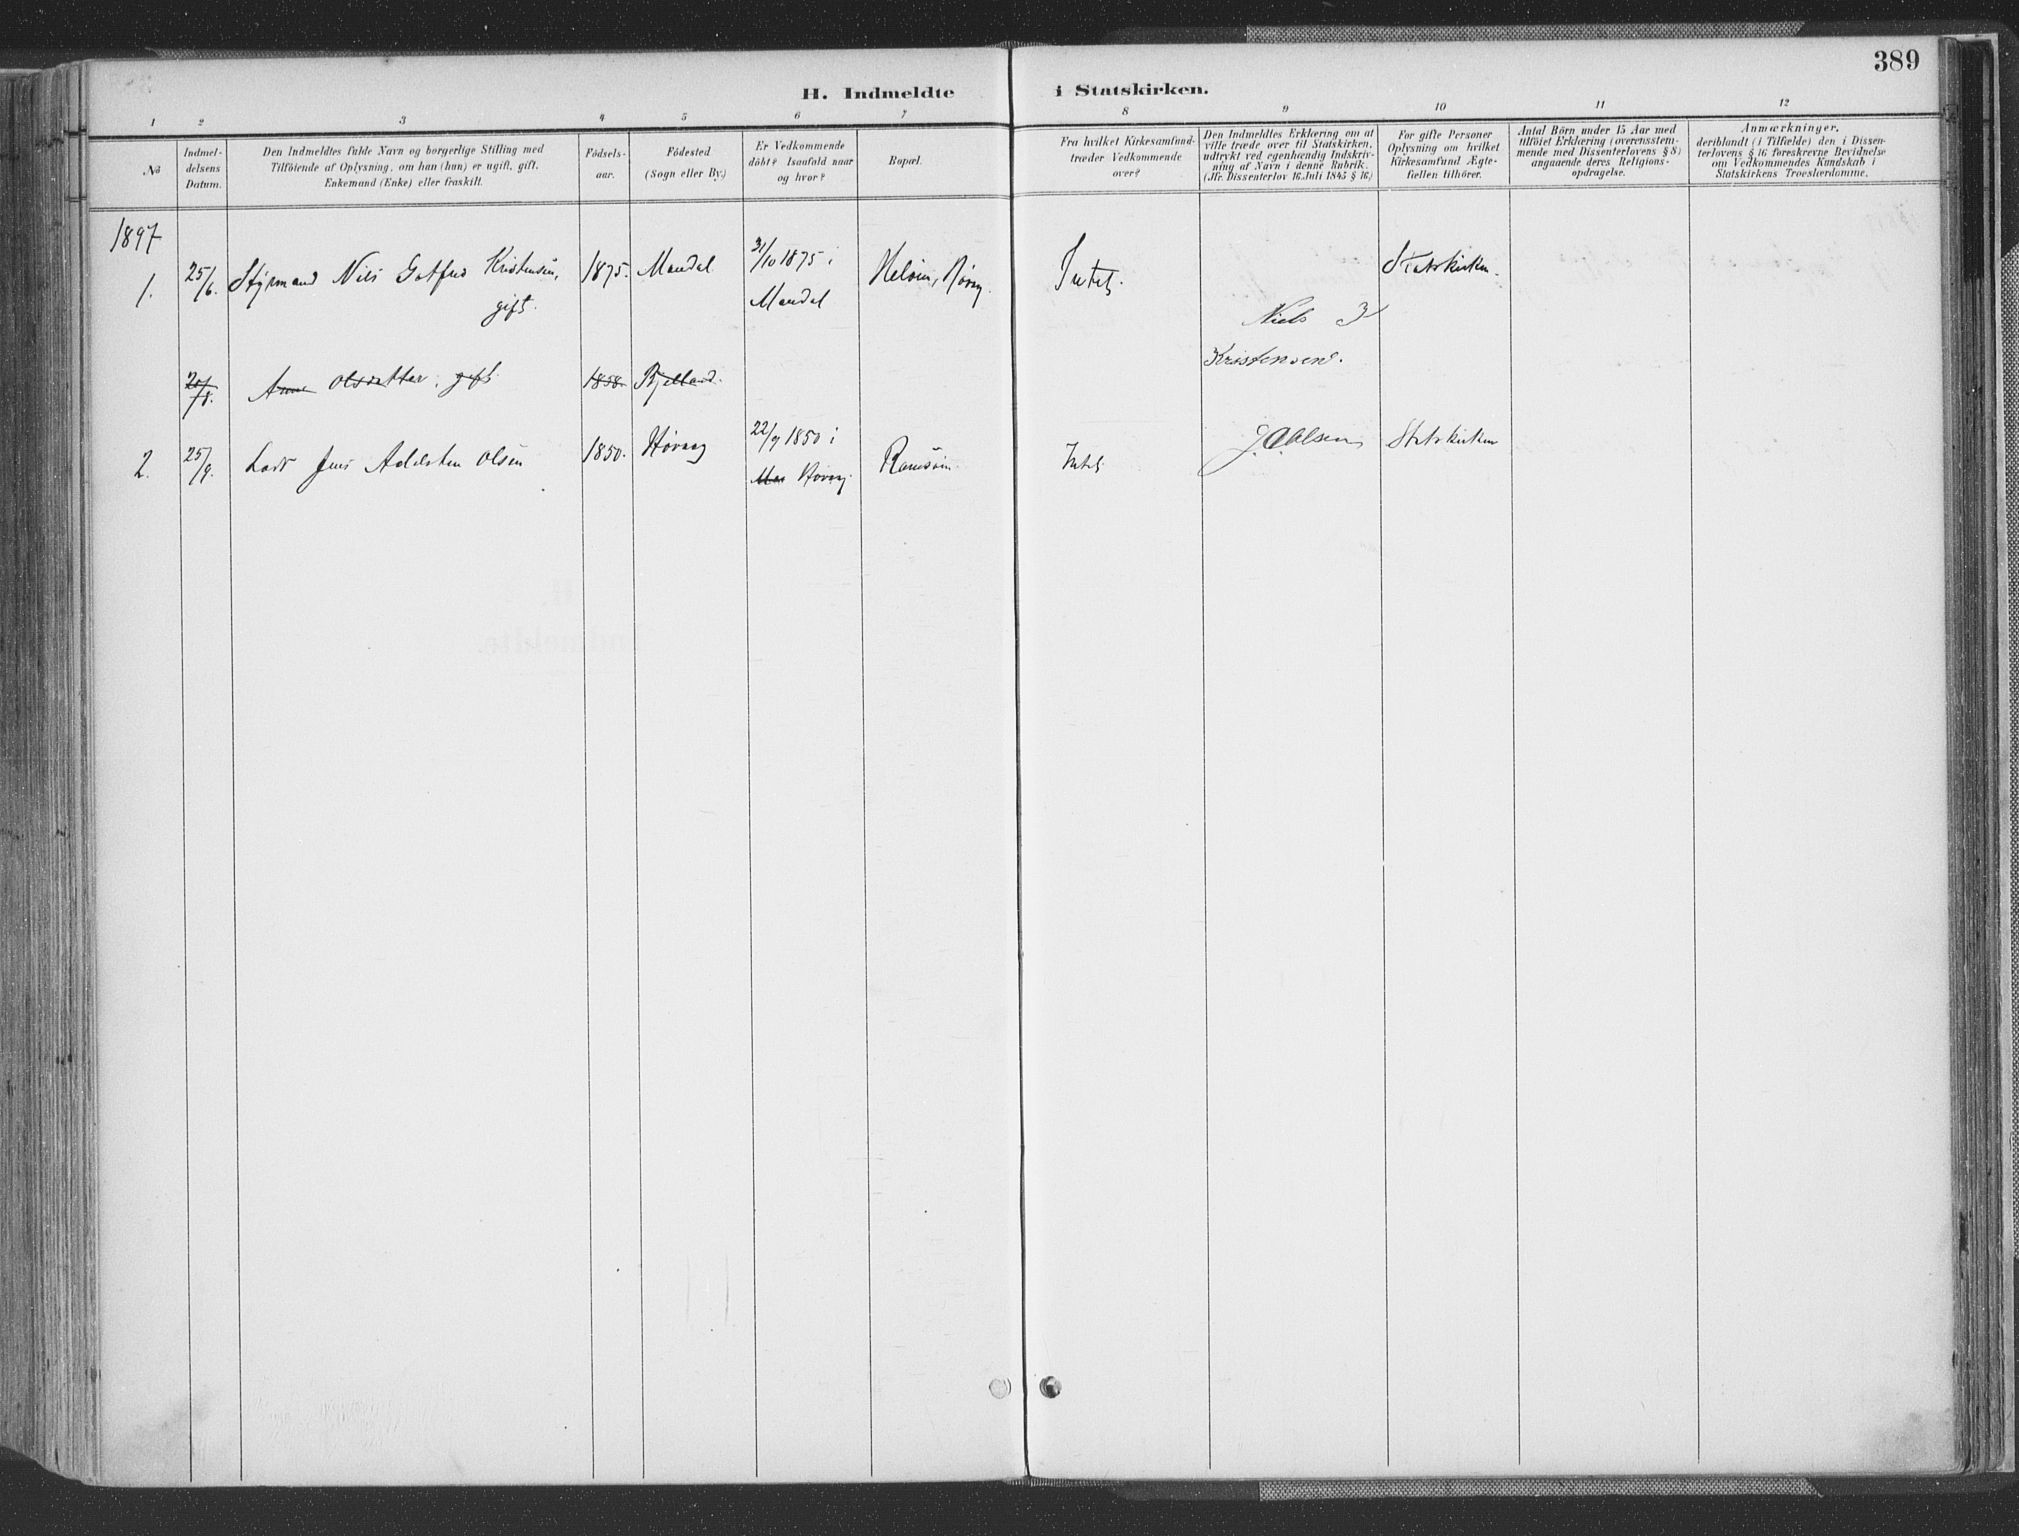 389
H. Indmeldte i Statskirken.
1 2 3 4 5 6 7 8 9 10 11 12
No
Indmel-
delsens
Datum.
Den Indmeldtes fulde Navn og borgerlige Stilling med
Tilföiende af Oplysning, om han (hun) er ugift, gift,
Enkemand (Enke) eller fraskilt.
Födsels-
aar.
Födested
(Sogn eller By.)
Er Vedkommende
döbt? Isaafald naar
og hvor?
Bopæl.
Fra hvilket Kirkesamfund
træder Vedkommende
over?
Den Indmeldtes Erklæring om at
ville træde over til Statskirken,
udtrykt ved egenhændig Indskriv-
ning af Navn i denne Rubrik.
(Jfr. Dissenterlov 16 Juli 1845 § 16.)
For gifte Personer
Oplysning om hvilket
Kirkesamfund Ægte-
fællen tilhörer.
Antal Börn under 15 Aar med
tilföiet Erklæring (overensstem-
mende med Dissenterlovens § 8)
angaaende deres Religions-
opdragelse.
Anmærkninger,
deriblandt (i Tilfælde) den i Dissen-
terlovens § 16 foreskrevne Bevidnelse
om Vedkommendes Kundskab i
Statskirkens Troeslærdomme.
1897
1. 25/6. Styrmand Nils Gotfred Kristensen, 1875. Mandal 31/10 1875 i Statskirken.
gift. Mandal Intet. Niels
Kristensen.
Anne Olsdatter, gift 1858. Bjelland.
2. 25/9. Lods Jens Adelsten Olsen 1850. Høvaag 22/9 1850 i Intet J. Olsen Statskirken
Høvaag.